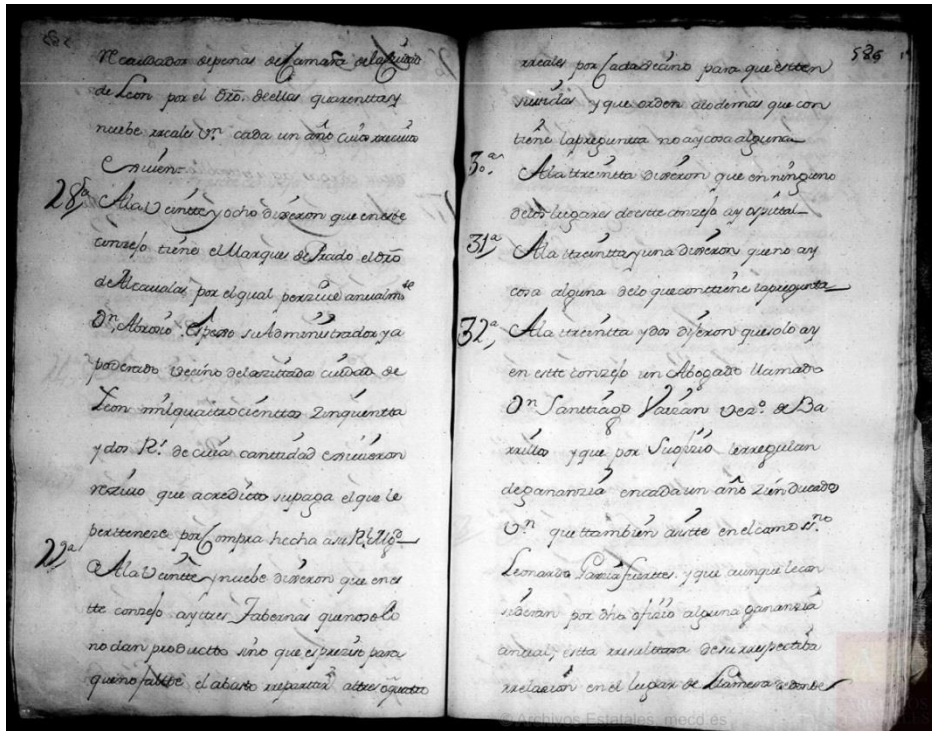 recaudador de penas de Camara de la Ciudad
de Leon por el dro. de ellas quarentta y
nuebe rreales Vn. cada un año cuio rrecivo
Exiuien
28a A la Veintte y ocho dixeron que en este
conzejo tiene el Marques de Prado el dro
de Alcaualas, por el qual perziue anualmte
Dn. Abrosio Espeso su Administrador y a
poderado Vecino de la zitada ciudad de
Leon mil quattrocienttos zinquentta
y dos Rs. de cuia canttidad exiuieron
reziuo que acreditta su paga el que le
perttenece por Compra hecha a su Rl.
29a A la Veintte y nuebe dixeron que en es
tte conzejo ay tres Tabernas que no solo
no dan productto sino que es preziso para
que no faltte el abasto repartir a ttres o quattro
585
rreales por Cada vecino para que estten
surtidas y que en orden a lo demas que con
tiene la preguntta no ay cosa alguna
30a A la ttreintta dixeron que en ninguno
de los lugares de estte conzejo ay ospital
31a A la ttreintta y una dixeron que no ay
cosa alguna de lo que conttiene la pregunta
32a A la ttreintta y dos dijeron que solo ay
en estte conzejo un Abogado llamado
Dn Santtiago Vaizan vezo. de Ba
rrillos y que por su ofizio le rregulan
de gananzia en cada un año zien ducados
Vn que ttambien asiste en el como ssno
Leonardo Garcia fuerttes. y que aunque le con
sideran por dho ofizio alguna gananzia
anual, estta rresulttara de su rrespectiba
rrelacion en el lugar de Llamera a donde
© Archivos Estatales, mecd.es